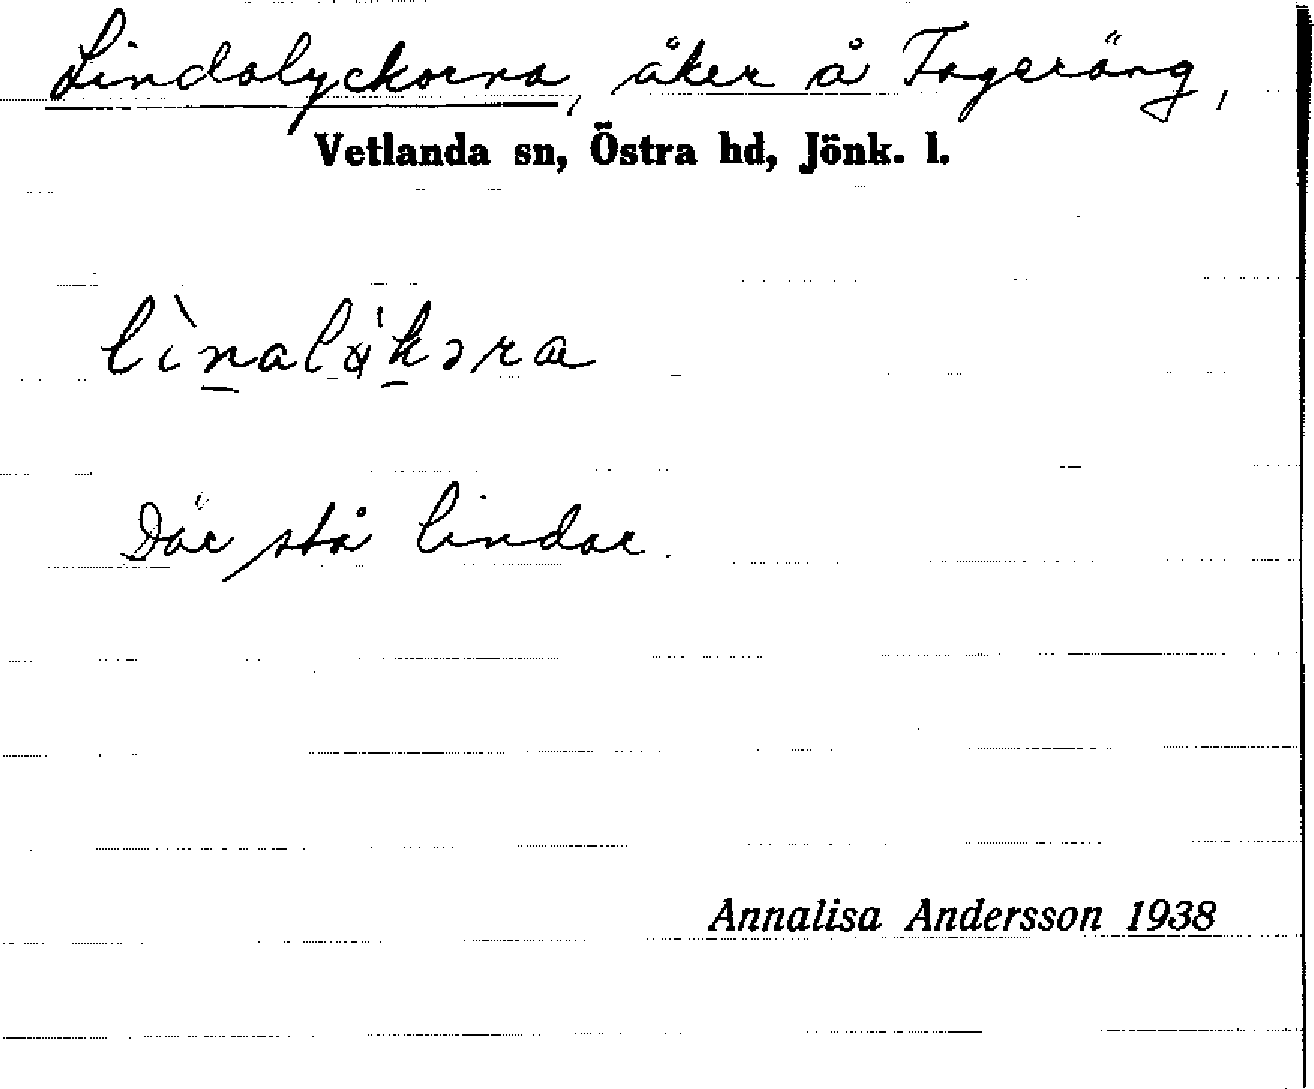 Lindalyckorna, åker å Fageräng,
Vetlanda sn, Östra hd, Jönk. l.
Där stå lindar.
Annalisa Andersson 1938